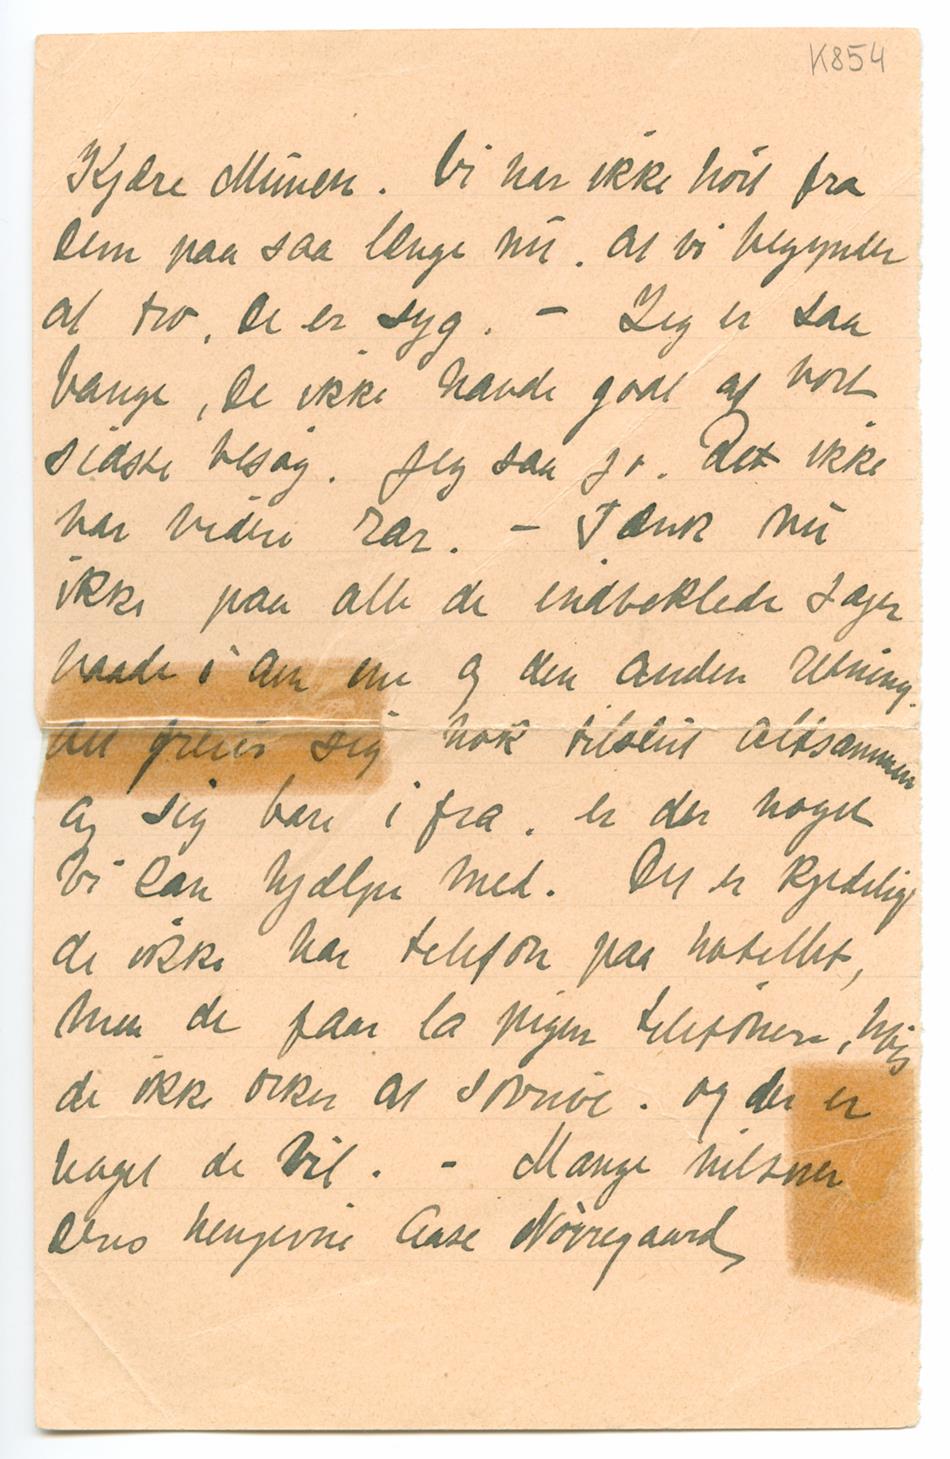 K854
Kjære Munch. Vi har ikke hört fra
Dem paa saa længe nu. at vi begynder
at tro, De er syg. – Jeg er saa
bange, De ikke havde godt af vort
sidste besøg. Jeg saa jo. Det ikke
var videre rar. – Tænk nu
ikke paa alle de indviklede sager
baade i den ene og den anden retning.
Det greier sig nok tilslut altsammen
og sig bare i fra. er der noget
vi kan hjælpe med. Det er kjedelig
de ikke har telefon paa hotellet,
men de faar la pigen telefonere, hvis
de ikke orker at skrive. og der er
noget de vil. – Mange hilsner
Deres hengivne Aase Nørregaard